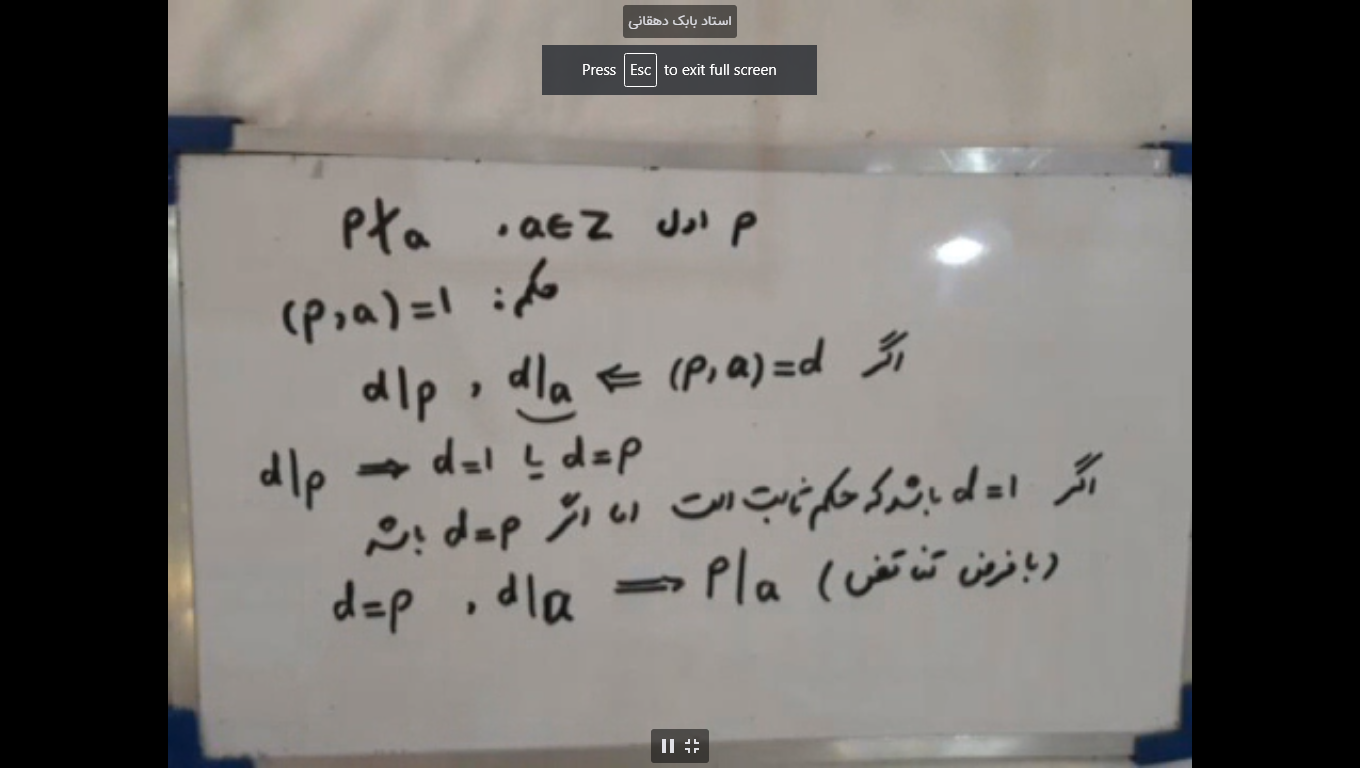 استاد بابک دهقانی
Press Esc to exit full screen
p اول ، a∈Z ، p∤a
حکم: (p,a)=1
اگر (p,a)=d ⇐ d|a , d|p
d|p ⟹ d=1 یا d=p
اگر d=1 باشد که حکم ثابت است اما اگر d=p باشد
d=p , d|a ⟹ p|a (با فرض تناقض)